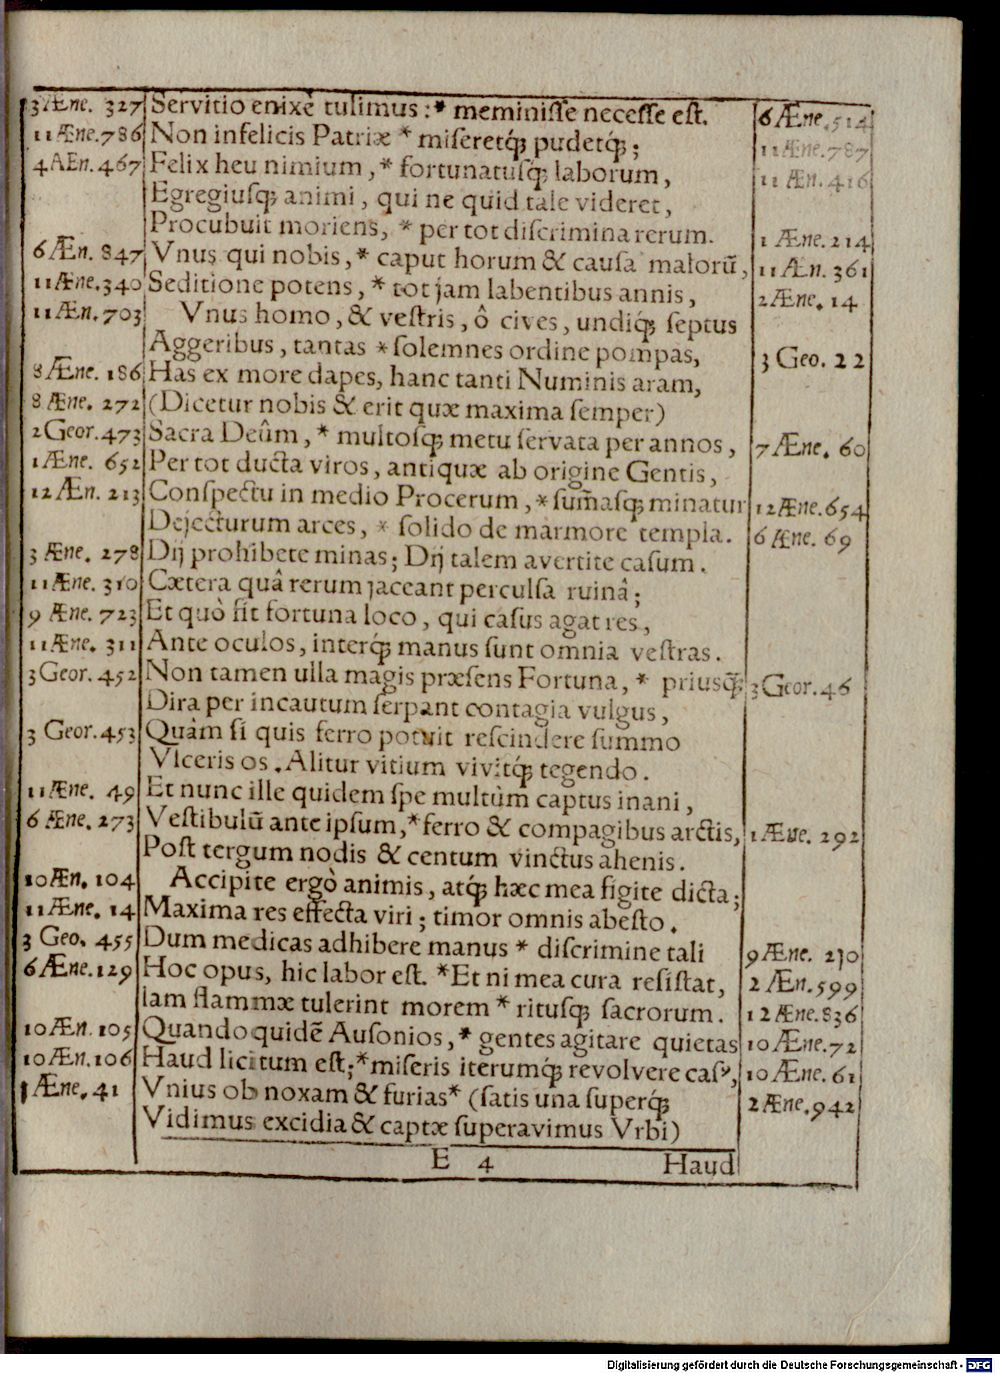 3 Æne. 327 Servitio enixè tulimus :* meminiſſe neceſſe eſt. 6 Æne. 514
11 Æne. 786 Non infelicis Patriæ * miſeretq́; pudetq́; ; 11 Æne. 787
4 AEn. 467 Felix heu nimium , * fortunatuſq́; laborum , 11 Æn. 416
Egregiuſq́; animi , qui ne quid tale videret ,
Procubuit moriens , * per tot diſcrimina rerum. 1 Æne. 214
6 Æn. 847 Vnus qui nobis , * caput horum & cauſa malorũ , 11 Æn. 361
11 Æne. 340 Seditione potens , * tot jam labentibus annis , 2 Æne. 14
11 Æn. 703 Vnus homo , & veſtris , ô cives , undiq́; ſeptus
Aggeribus , tantas * ſolemnes ordine pompas , 3 Geo. 22
8 Æne. 186 Has ex more dapes , hanc tanti Numinis aram ,
8 Æne. 272 (Dicetur nobis & erit quæ maxima ſemper)
2 Geor. 473 Sacra Deûm , * multoſq́; metu ſervata per annos , 7 Æne. 60
1 Æne. 652 Per tot ducta viros , antiquæ ab origine Gentis ,
12 Æn. 213 Conſpectu in medio Procerum , * ſum̃aſq́; minatur 12 Æne. 654
Dejecturum arces , * ſolido de marmore templa. 6 Æne. 69
3 Æne. 278 Dij prohibete minas ; Dij talem avertite caſum .
11 Æne. 310 Cætera quâ rerum jaceant perculſa ruinâ ;
9 Æne. 723 Et quò ſit fortuna loco , qui caſus agat res ,
11 Æne. 311 Ante oculos , interq́; manus ſunt omnia veſtras .
3 Geor. 452 Non tamen ulla magis præſens Fortuna , * priuſq̃; 3 Geor. 46
Dira per incautum ſerpant contagia vulgus ,
3 Geor. 453 Quàm ſi quis ferro potuit reſcindere ſummo
Vlceris os . Alitur vitium vivitq́; tegendo .
11 Æne. 49 Et nunc ille quidem ſpe multùm captus inani ,
6 Æne. 273 Veſtibulũ ante ipſum , * ferro & compagibus arctis , 1 Æne. 292
Poſt tergum nodis & centum vinctus ahenis .
10 Æn. 104 Accipite ergò animis , atq́; hæc mea figite dicta ;
11 Æne. 14 Maxima res effecta viri ; timor omnis abeſto .
3 Geo. 455 Dum medicas adhibere manus * diſcrimine tali 9 Æne. 210
6 Æne. 129 Hoc opus, hic labor eſt. * Et ni mea cura reſiſtat , 2 Æn. 599
Iam flammæ tulerint morem * rituſq́; ſacrorum . 12 Æne. 836
10 Æn. 105 Quandoquidẽ Auſonios , * gentes agitare quietas 10 Æne. 72
10 Æn. 106 Haud licitum eſt ; * miſeris iterumq́; revolvere caſꝰ , 10 Æne. 61
1 Æne. 41 Vnius ob noxam & furias * (ſatis una ſuperq́; 2 Æne. 942
Vidimus excidia & captæ ſuperavimus Vrbi)
E 4 Haud
Digitalisierung gefördert durch die Deutsche Forschungsgemeinschaft - DFG